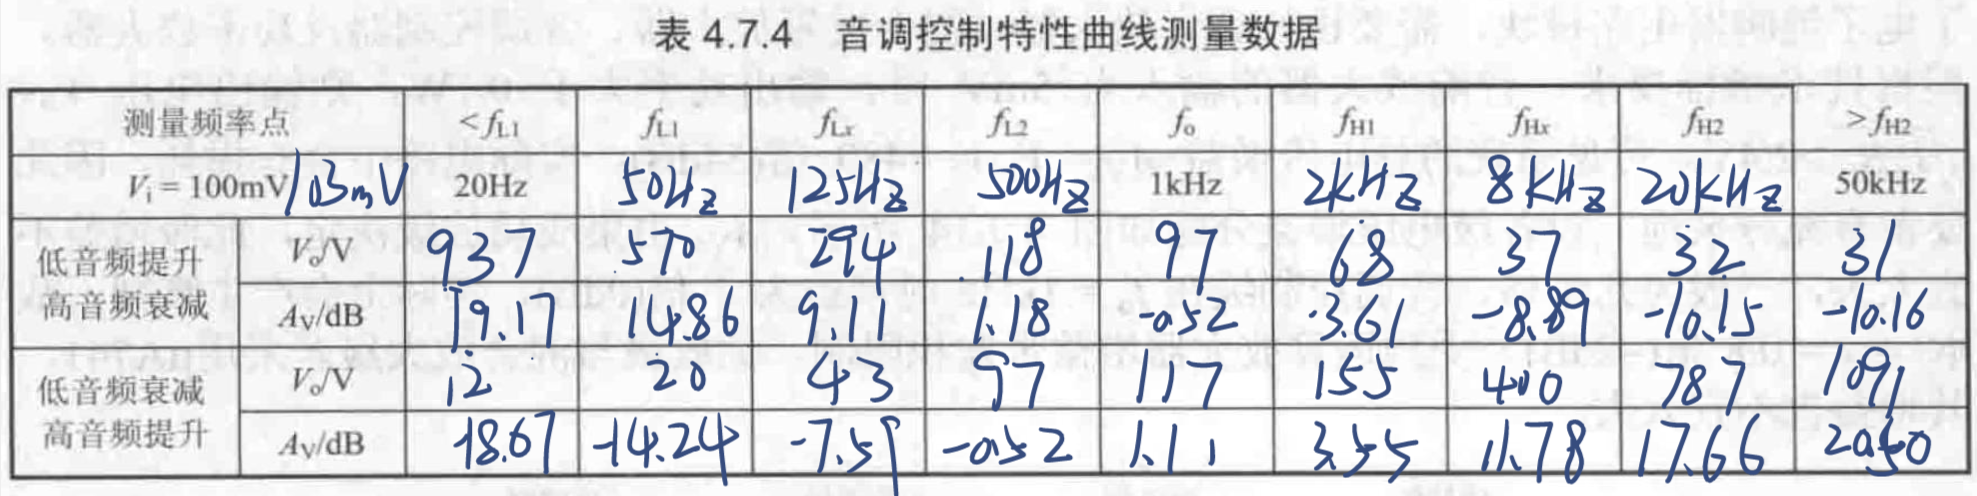 表 4.7.4 音调控制特性曲线测量数据
测量频率点 <fL1 fL1 fLx fL2 fo fH1 fHx fH2 >fH2
Vi = 100mV/103mV 20Hz 50Hz 125Hz 500Hz 1kHz 2KHz 8KHz 20KHz 50kHz
低音频提升 高音频衰减 Vo/V 937 570 294 118 97 68 37 32 31
AV/dB 19.17 14.86 9.11 1.18 -0.52 -3.61 -8.89 -10.15 -10.16
低音频衰减 高音频提升 Vo/V 12 20 43 97 117 155 400 787 1091
AV/dB -18.67 -14.24 -7.59 -0.52 1.11 3.55 11.78 17.66 20.50